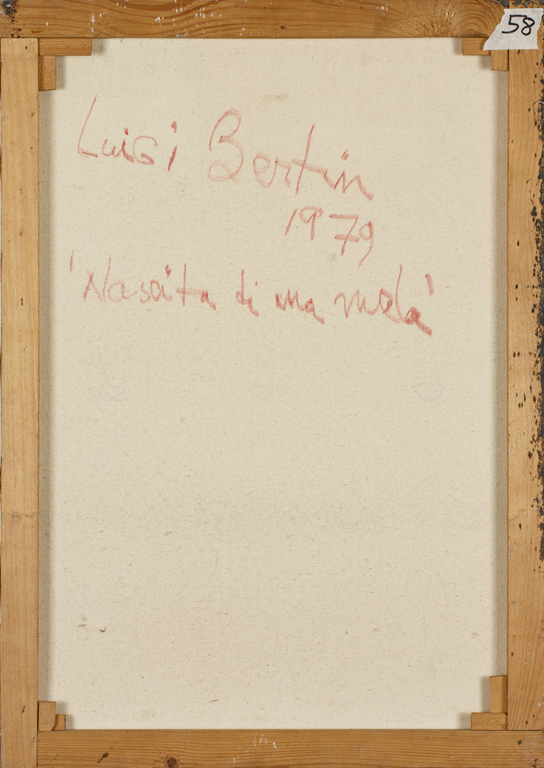 58
Luigi Bertin
1979
'Nascita di una mela'